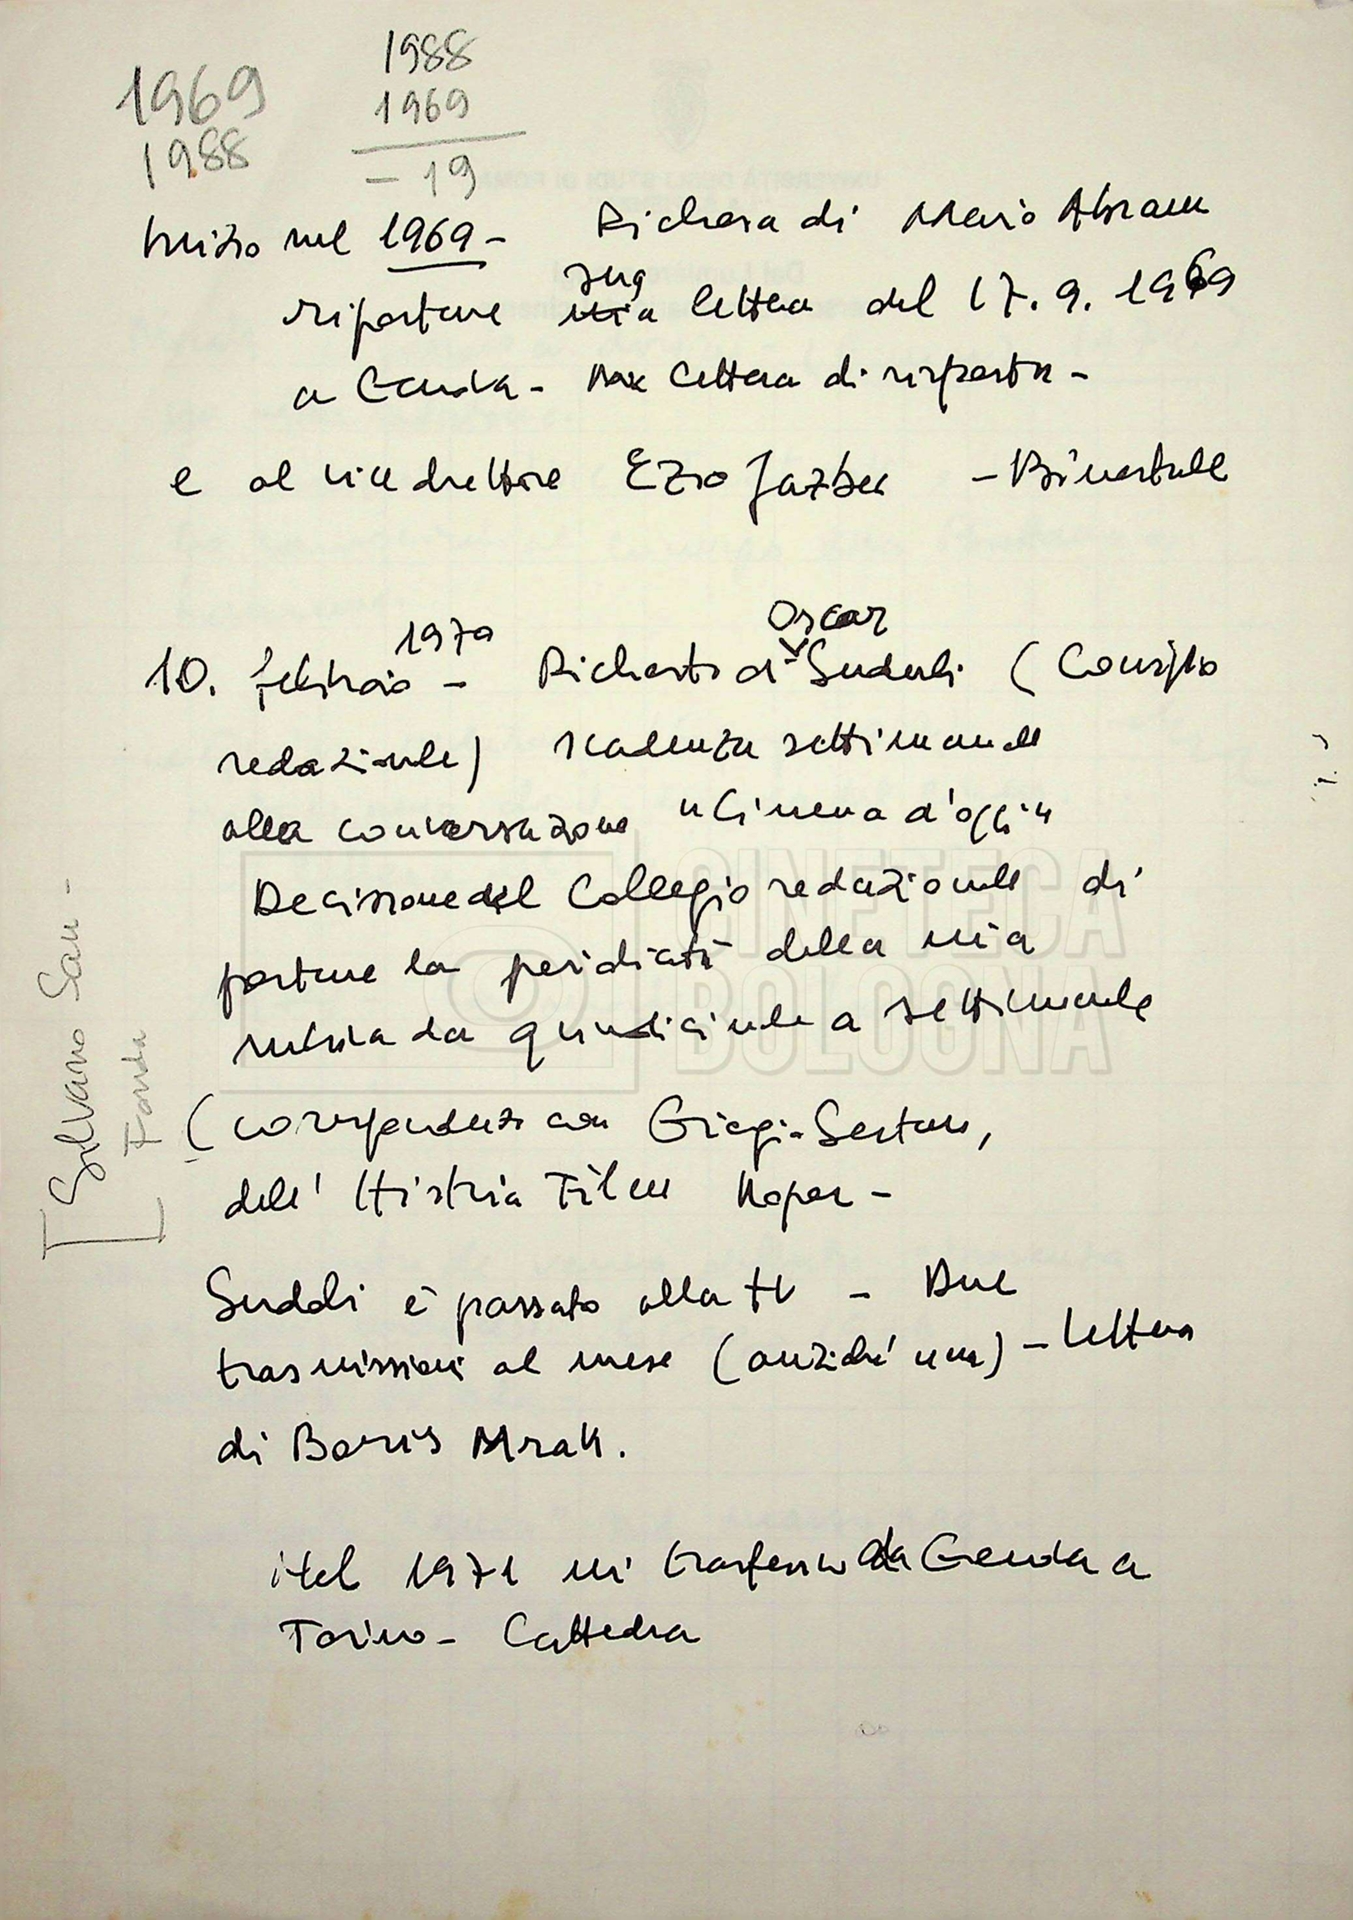 1969
1988
1988
1969
- 19
Inizio nel 1969 - Richiesa di Mario Abram
sua
riportare mia lettera del 17.9.1969
a Genova - Mia lettera di risposta -
e al vicedirettore Ezio - Bimestrale
1970
Oscar
10. febbraio - Richiesta di (Consiglio
redazionale) scadenza settimanale
alla conversazione "Cinema d'oggi"
Decisione del Collegio redazionale di
portare la peridicità della mia
rubrica da quindicinale a settimanale
(corrispondenza con
dell' Histria Film Koper -
è passato alla tv - Due
trasmissioni al mese (anziché una) - lettera
di Boris Mrak.
Nel 1971 mi trasferisco da Genova a
Torino - Cattedra
[Silvano Sau -
Fonda
CINETECA
BOLOGNA